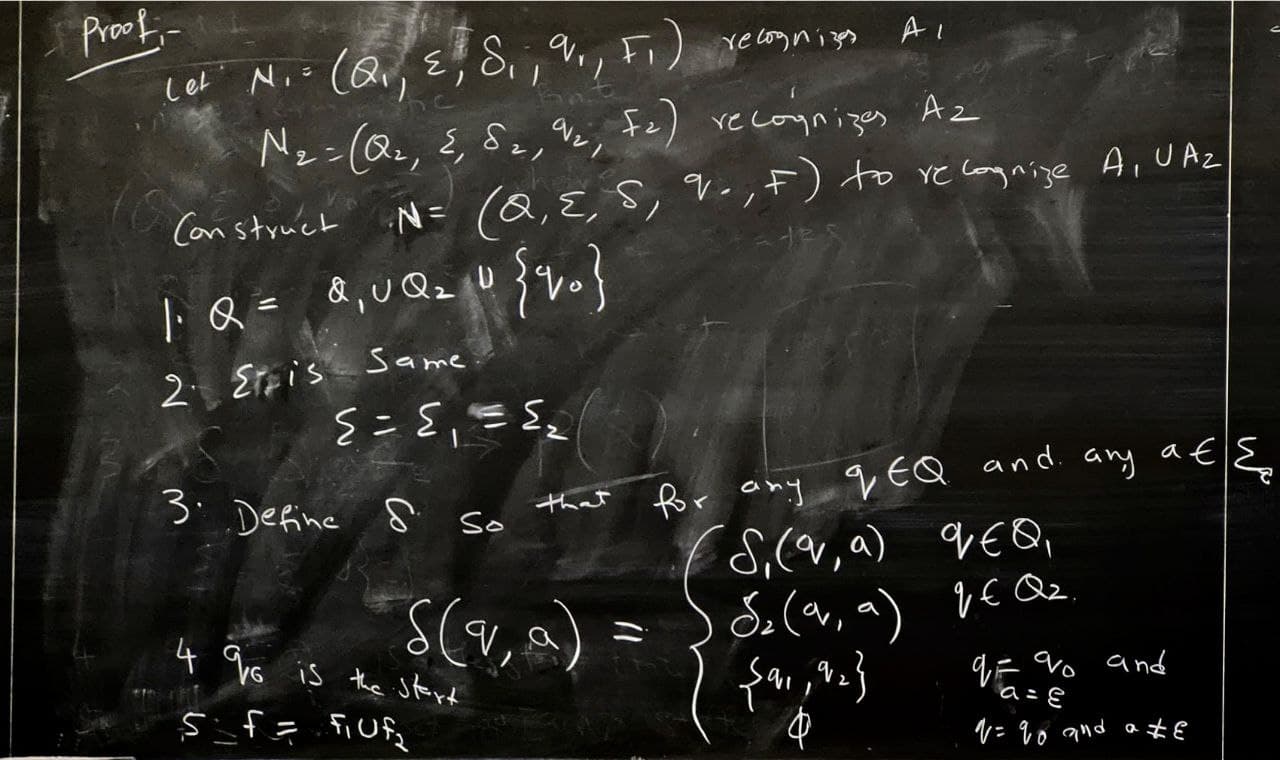 Proof:-
Let N₁ = (Q₁, Σ, δ₁, q₁, F₁) recognizes A₁
N₂ = (Q₂, Σ, δ₂, q₂, F₂) recognizes A₂
Construct N = (Q, Σ, δ, q₀, F) to recognize A₁ ∪ A₂
1. Q = Q₁ ∪ Q₂ ∪ {q₀}
2. Σ is same.
Σ = Σ₁ = Σ₂
3. Define δ so that for any q ∈ Q and any a ∈ Σ_ε
δ(q, a) = { δ₁(q, a) q ∈ Q₁
δ₂(q, a) q ∈ Q₂.
{q₁, q₂} q = q₀ and a = ε
φ q = q₀ and a ≠ ε
4 q₀ is the start
5. F = F₁ ∪ F₂